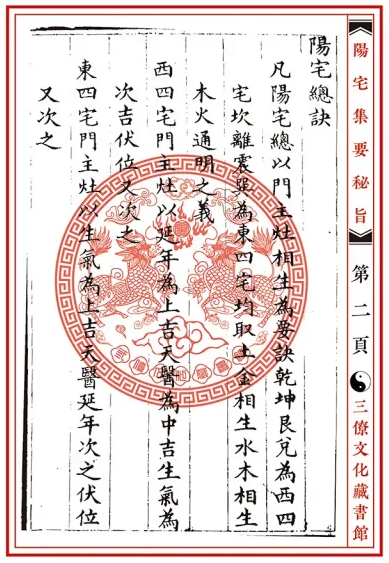 陽宅總訣
凡陽宅總以門主灶相生為要訣乾坤艮兌為西四
宅坎離震巽為東四宅均取土金相生水木相生
木火通明之義
西四宅門主灶以延年為上吉天醫為中吉生氣為
次吉伏位又次之
東四宅門主灶以生氣為上吉天醫延年次之伏位
又次之
陽宅集要秘旨
第二頁
三僚文化藏書館